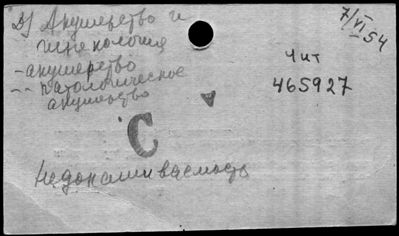 2) Акушерство и
гинекология
- акушерство
-- патологическое
акушерство
7/VI 54
чит
465927
С
Недонашиваемость